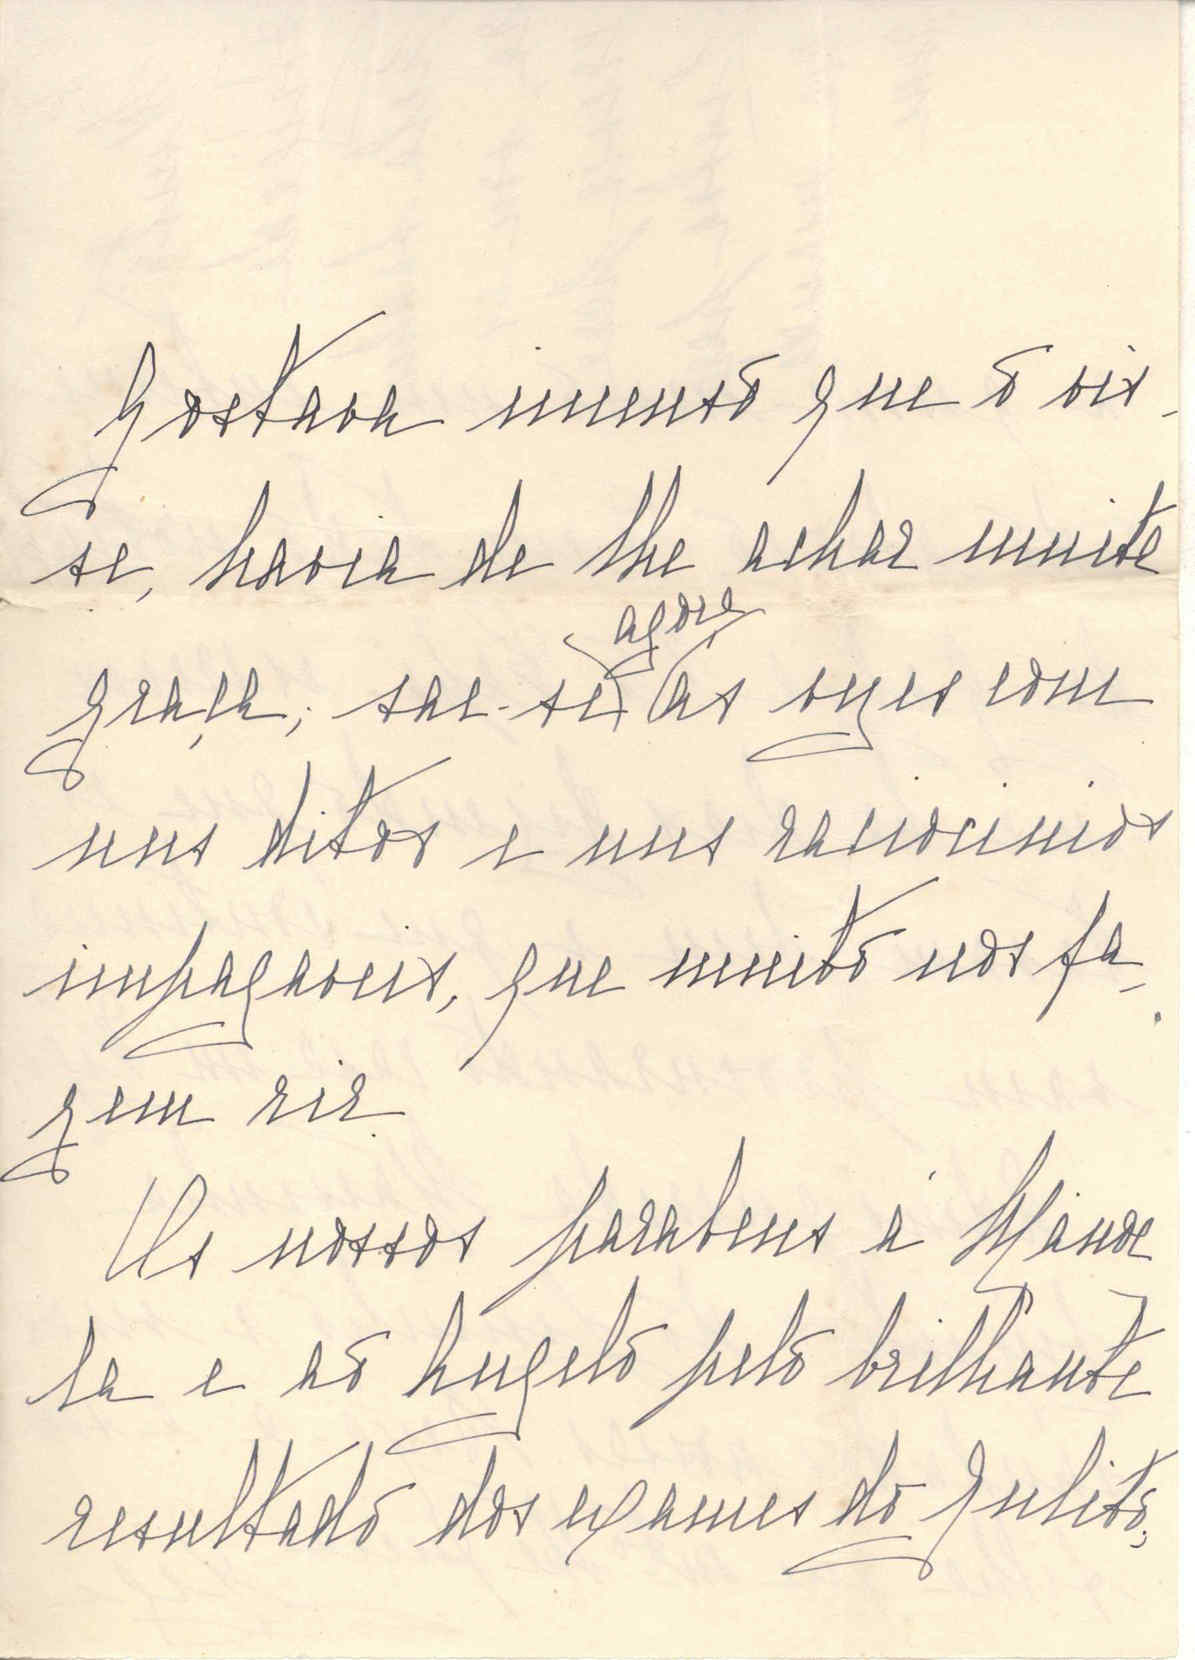 Gostava imenso que o vis-
se, havia de lhe achar muita
graça; sae-se agora ás vezes com
uns ditos e uns raciocinios
impagaveis, que muito nos fa-
zem rir.
Os nossos parabens á Manoe
la e ao Angelo pelo brilhante
resultado dos exames do Julito,